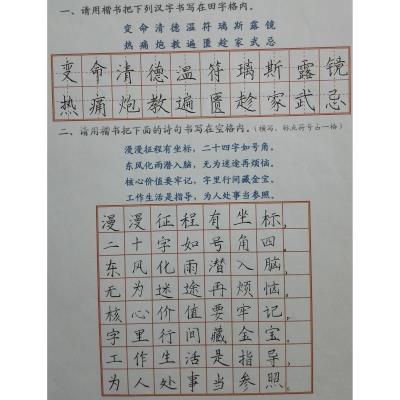 一、请用楷书把下列汉字书写在田字格内。
变命清德温符璃斯露镜
热痛炮教遍匮趁家武忌
变命清德温符璃斯露镜
热痛炮教遍匮趁家武忌
二、请用楷书把下面的诗句书写在空格内。（横写、标点符号占一格）
漫漫征程有坐标，二十四字如号角。
东风化雨潜入脑，无为迷途再烦恼。
核心价值要牢记，字里行间藏金宝。
工作生活是指导，为人处事当参照。
漫漫征程有坐标，
二十字如号角四，
东风化雨潜入脑，
无为迷途再烦恼，
核心价值要牢记，
字里行间藏金宝，
工作生活是指导，
为人处事当参照。